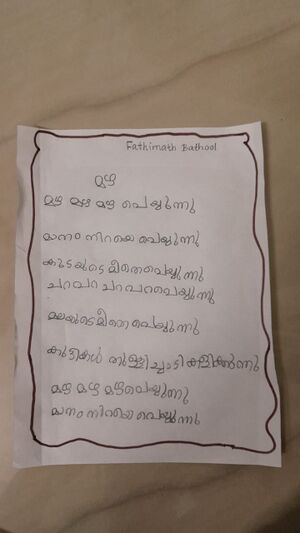 Fathimath Bathool
മഴ
മഴ മഴ മഴ പെയ്യുന്നു
മാനം നിറയെ പെയ്യുന്നു
കുടയുടെ മീതെപെയ്യുന്നു
ചറപറ ചറപറപെയ്യുന്നു
മലയുടെമീതെ പെയ്യുന്നു
കുട്ടികൾ തുള്ളിച്ചാടി കളിക്കുന്നു
മഴ മഴ മഴപെയ്യുന്നു
മാനം നിറയെ പെയ്യുന്നു